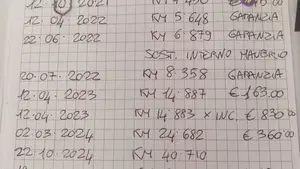 12·04·2022 KM 5·648 GARANZIA
22·06·2022 KM 6·879 GARANZIA
SOST. INTERNO
20·07·2022 KM 8·358 GARANZIA
12·04·2023 KM 14·887 € 163.00
12·04·2023 KM 14 883 x INC. € 830
02·03·2024 KM 24·682 € 360.00
22·10·2024 KM 40·710